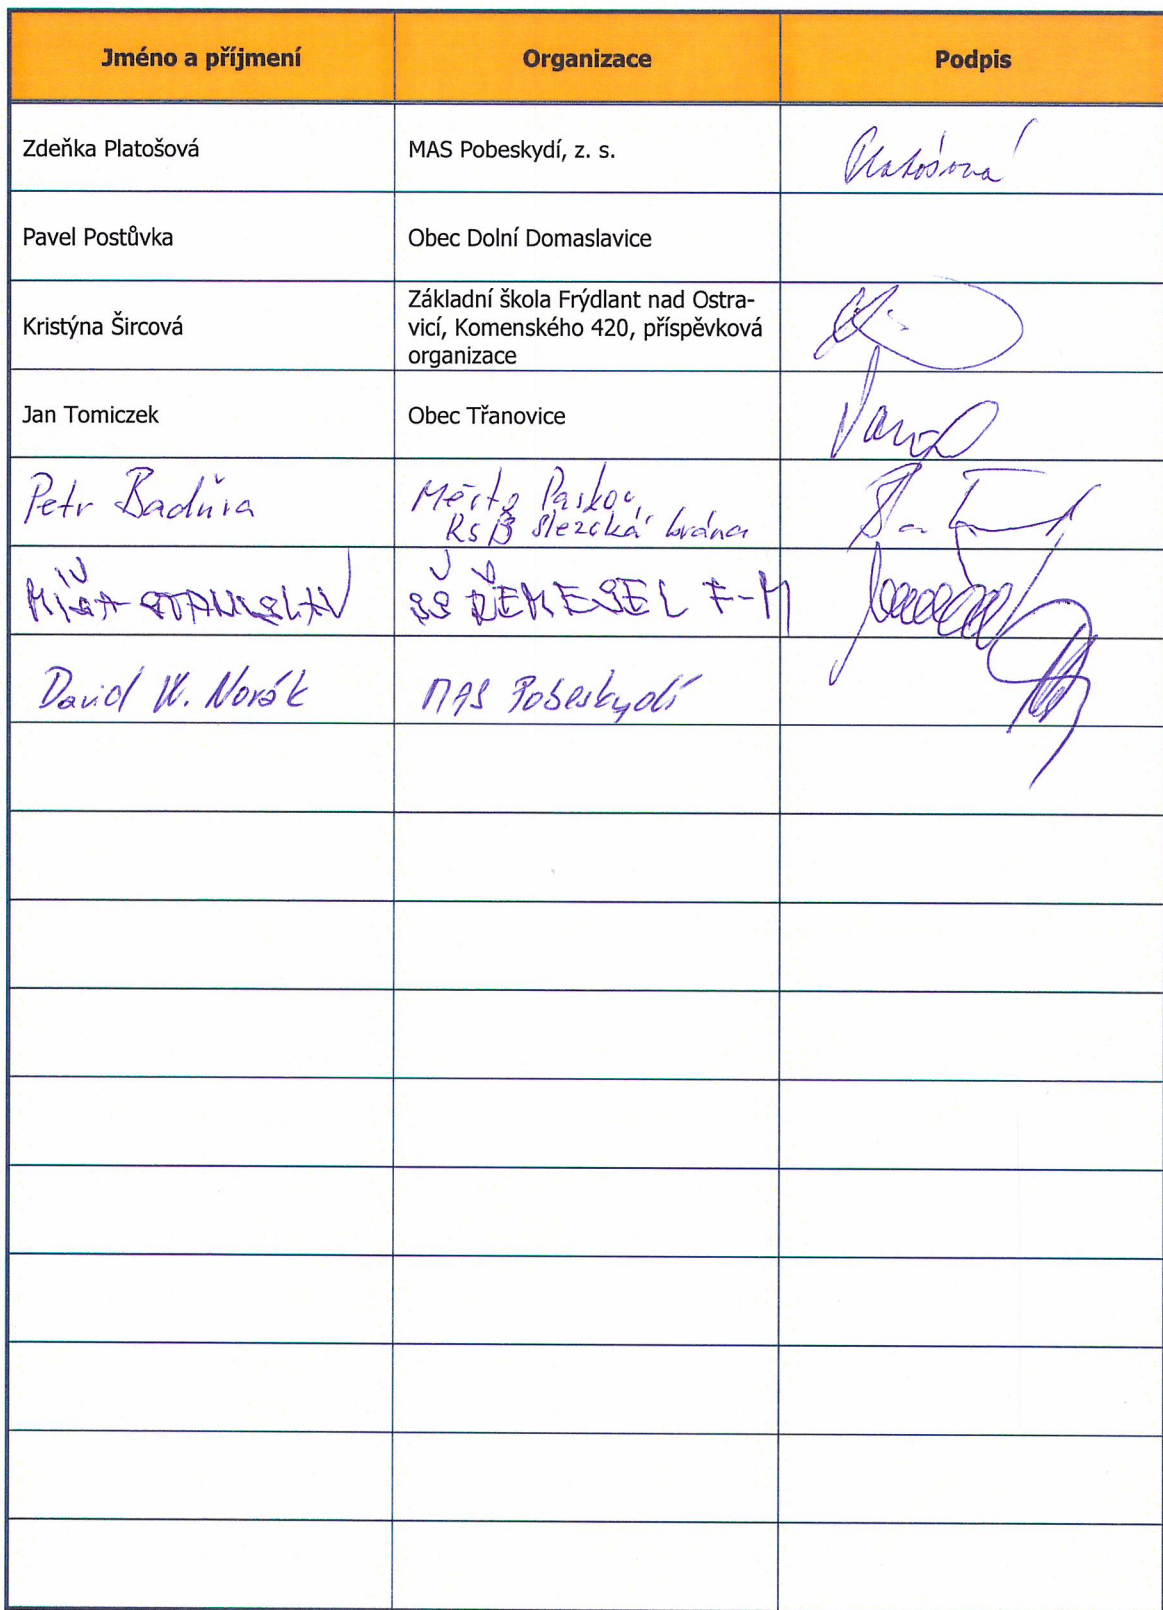 Jméno a příjmení Organizace Podpis
Zdeňka Platošová MAS Pobeskydí, z. s. Platošová
Pavel Postůvka Obec Dolní Domaslavice
Kristýna Šircová Základní škola Frýdlant nad Ostra-
vicí, Komenského 420, příspěvková
organizace
Jan Tomiczek Obec Třanovice
Petr Baďura Město Paskov,
RSB Slezská brána
STANISLAV SŠ ŘEMESEL F-M
David W. Novák MAS Pobeskydí